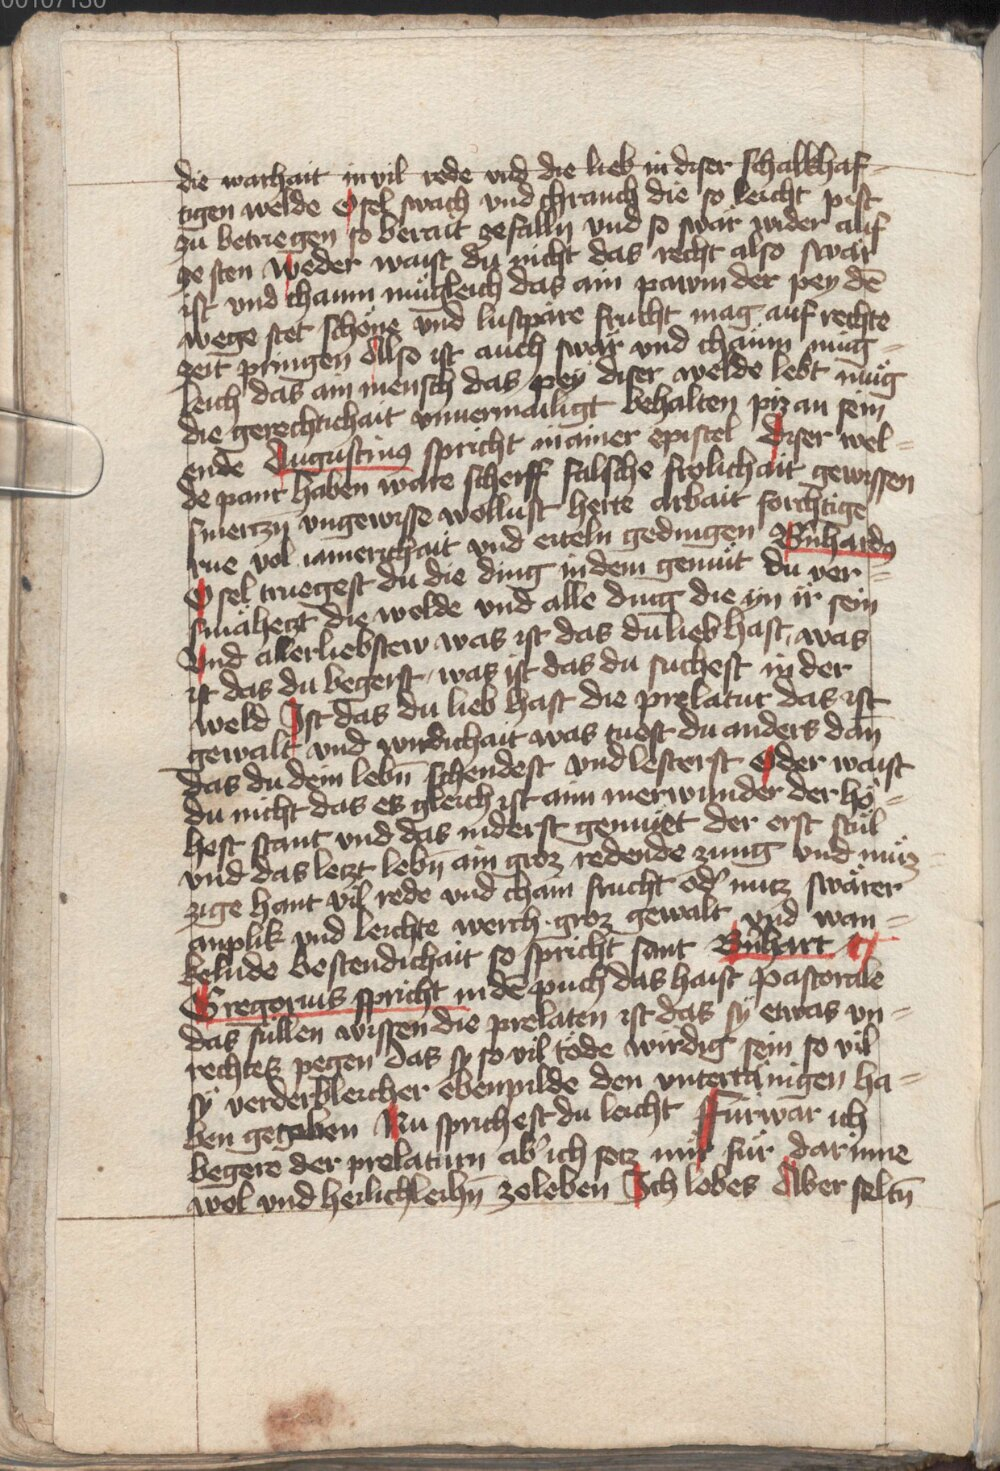 die warhait in vil rede vnd die lieb in diser schalkhaf-
tigen welde O sel swach vnd chranch die so leicht pist
zu betriegen so berait zefalln vnd so swär wider auf
ze sten Weder waist du nicht das recht also swär
ist vnd chaum mugleich das ain pawm der pey dē
wege stet schöne vnd lustpäre frucht mag auf rechte
zeit pringen Also ist auch swär vnd chaum müg-
leich das ain mensch das pey diser welde lebt müg
die gerechtichait vnuermailigt behalten piz an sein
ende Augustinus spricht in ainer epistel Diser wel-
de pant haben ware scherff falsche frölichait gewissen
smerczn̄ vngewisse wollust herte arbait forchtige
rue vol iamerichait vnd eiteln gedingen Bn̄hardus
O sel truegest du die ding in dem gemüt du ver-
smähegt die welde vnd alle ding die yn ir sein
Vnd allerliebstew was ist das du lieb hast was
ist das du begerst was ist das du suchest in der
weld Ist das du lieb hast die prelatur das ist
gewalt vnd wirdichait was tuest du anders dan̄
das du dein lebn̄ schendest vnd lesterst Oder waist
du nicht das es gleich ist aim merwunder der hö-
hest stant vnd das niderst gemüet der erst stul
vnd das letzt lebn̄ ain groz redende zung vnd müz-
zige hant vil rede vnd chain frucht od' nutz swärer
anplik vnd leichte werch groz gewalt vnd wan-
kelnde bestendichait so spricht sant Bn̄hart
Gregorius spricht in dē puch das haist Pastorale
das sullen wissen die prelaten ist das sy etwas vn-
rechtes pegen das sy so vil töde wirdig sein so vil
sy verderbleicher ebenpilde den vntertänigen ha-
ben gegeben Nu sprichest du leicht Fürwar ich
begere der prelaturn ab' ich setz mir für darinne
wol vnd heilichleichn̄ zeleben Ich lobes Aber seltn̄